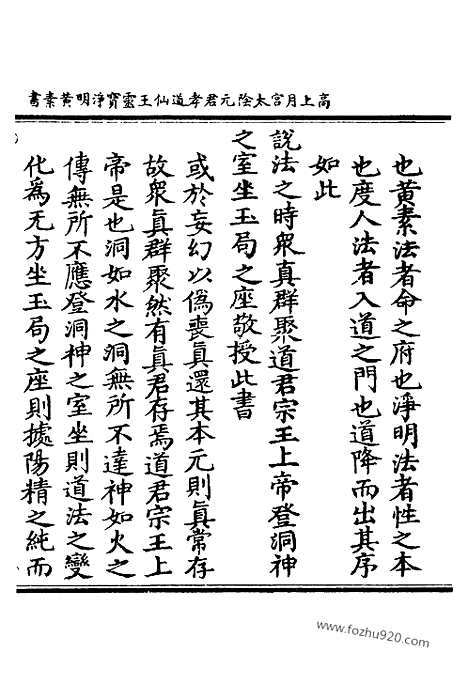 高上月宮太陰元君孝道仙王靈寶淨明黃素書
也黄素法者命之府也淨明法者性之本
也度人法者入道之門也道降而出其序
如此
說法之時衆真群聚道君宗王上帝登洞神
之室坐玉局之座敬授此書
或於妄幻以僞喪眞還其本元則眞常存
故衆眞群聚然有眞君存焉道君宗王上
帝是也洞如水之洞無所不達神如火之
傳無所不應登洞神之室坐則道法之變
化為无方坐玉局之座則據陽精之純而
www.fozhu920.com